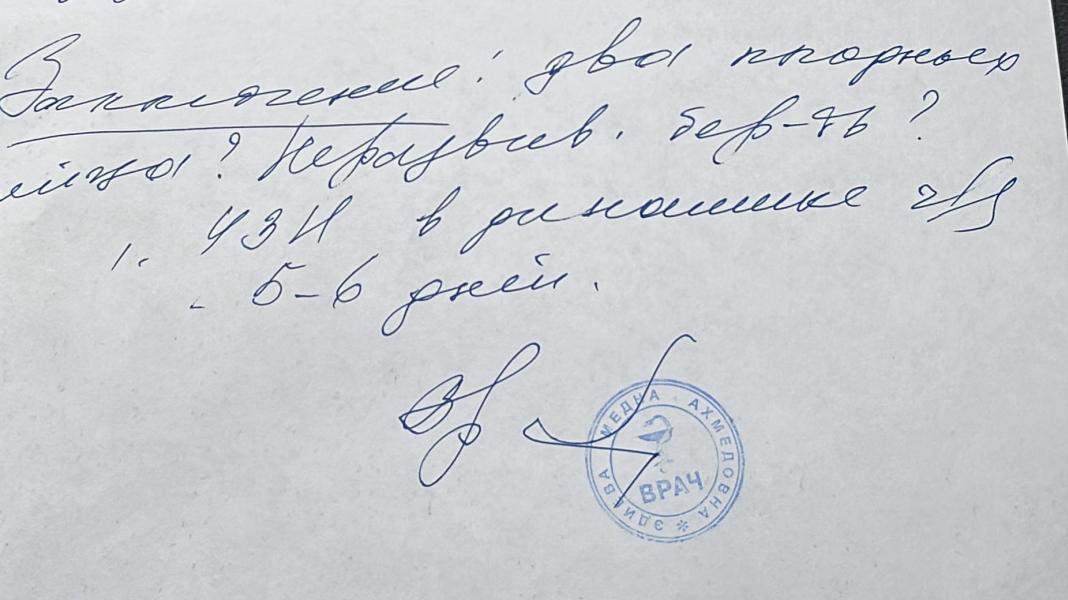 Заключение: два плодных
яйца? Неразвив. бер-ть?
УЗИ в динамике ч/з
5-6 дней.
Вр
ЭДИЕВА МЕДНА АХМЕДОВНА *
ВРАЧ